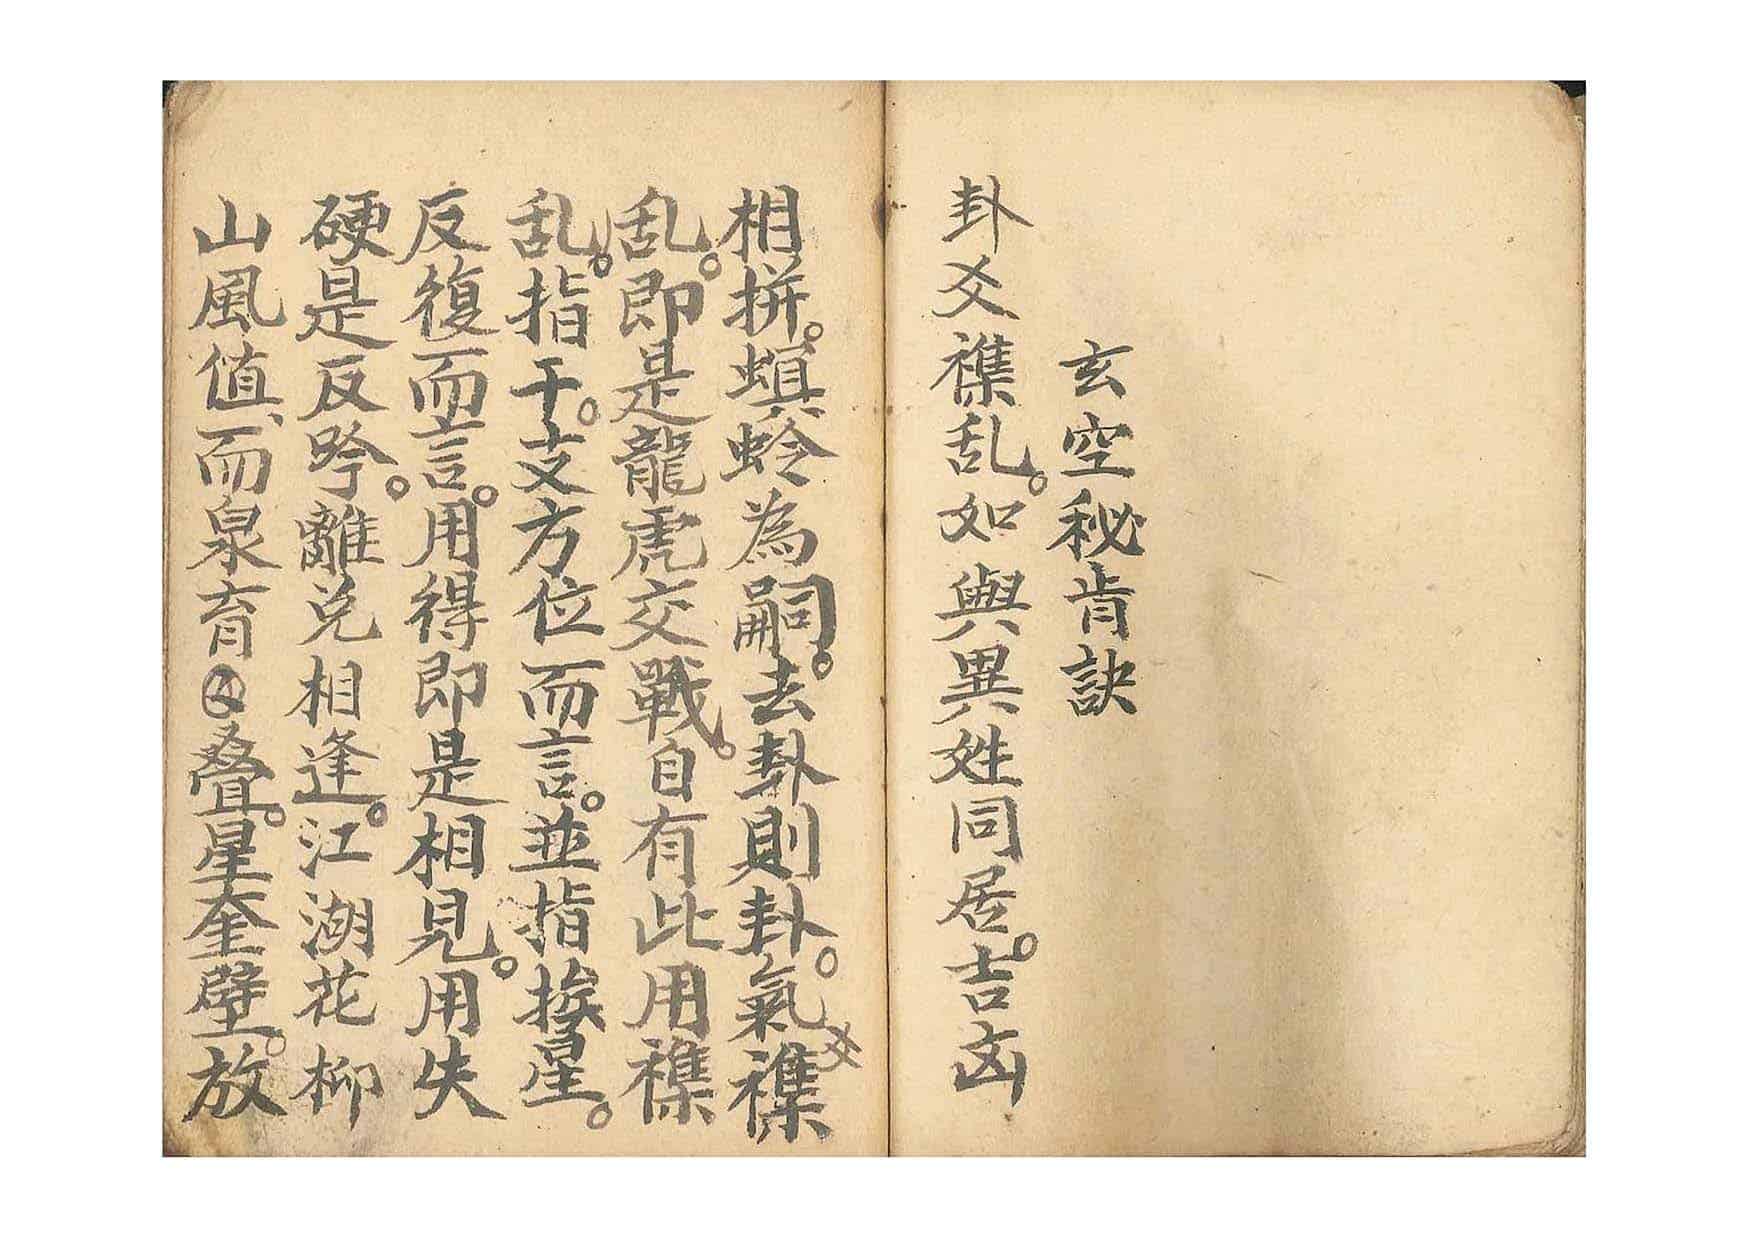 玄空秘肯訣
卦爻襍乱。如與異姓同居。吉凶
相拼。螟蛉為嗣。去卦則卦。氣爻襍
乱。即是龍虎交戰。自有此用襍
乱。指干。支方位而言。並指挨星。
反復而言。用得即是相見。用失
硬是反吟。離兌相逢。江湖花柳
山風值、而泉育叠。星奎壁。放